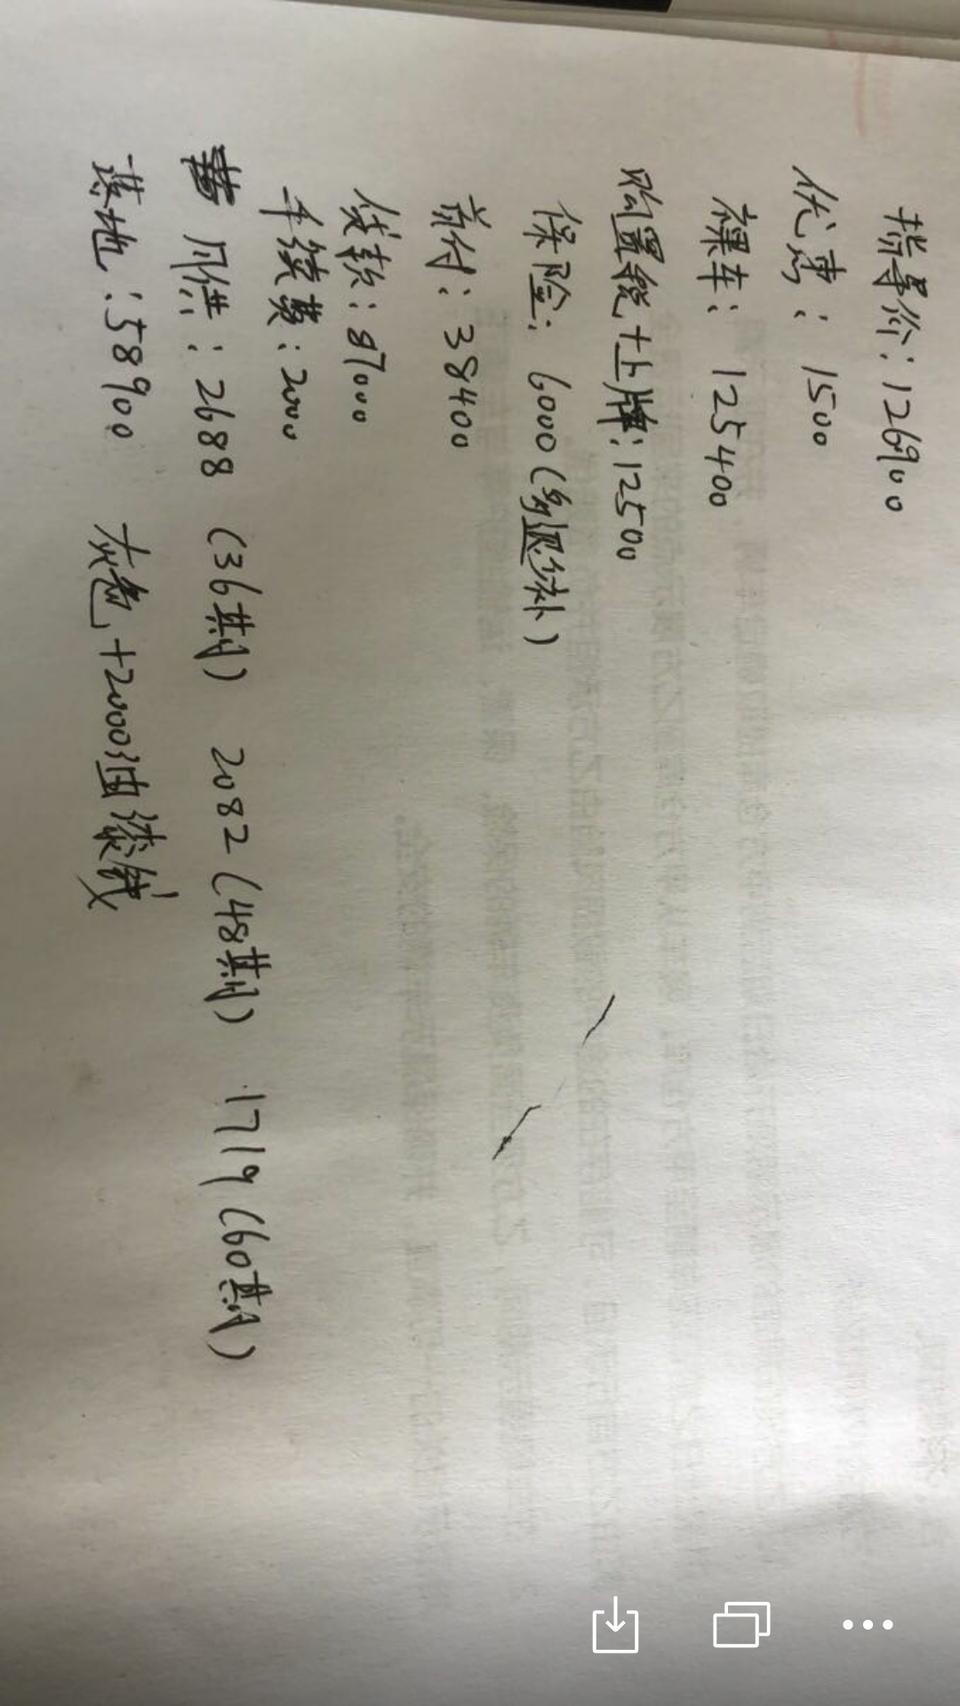 指导价：126900
优惠：1500
裸车：125400
购置税+上牌：12500
保险：6000（多退少补）
首付：38400
贷款：87000
手续费：2000
月供：2688（36期） 2082（48期） 1719（60期）
落地：58900 灰色+2000油漆钱